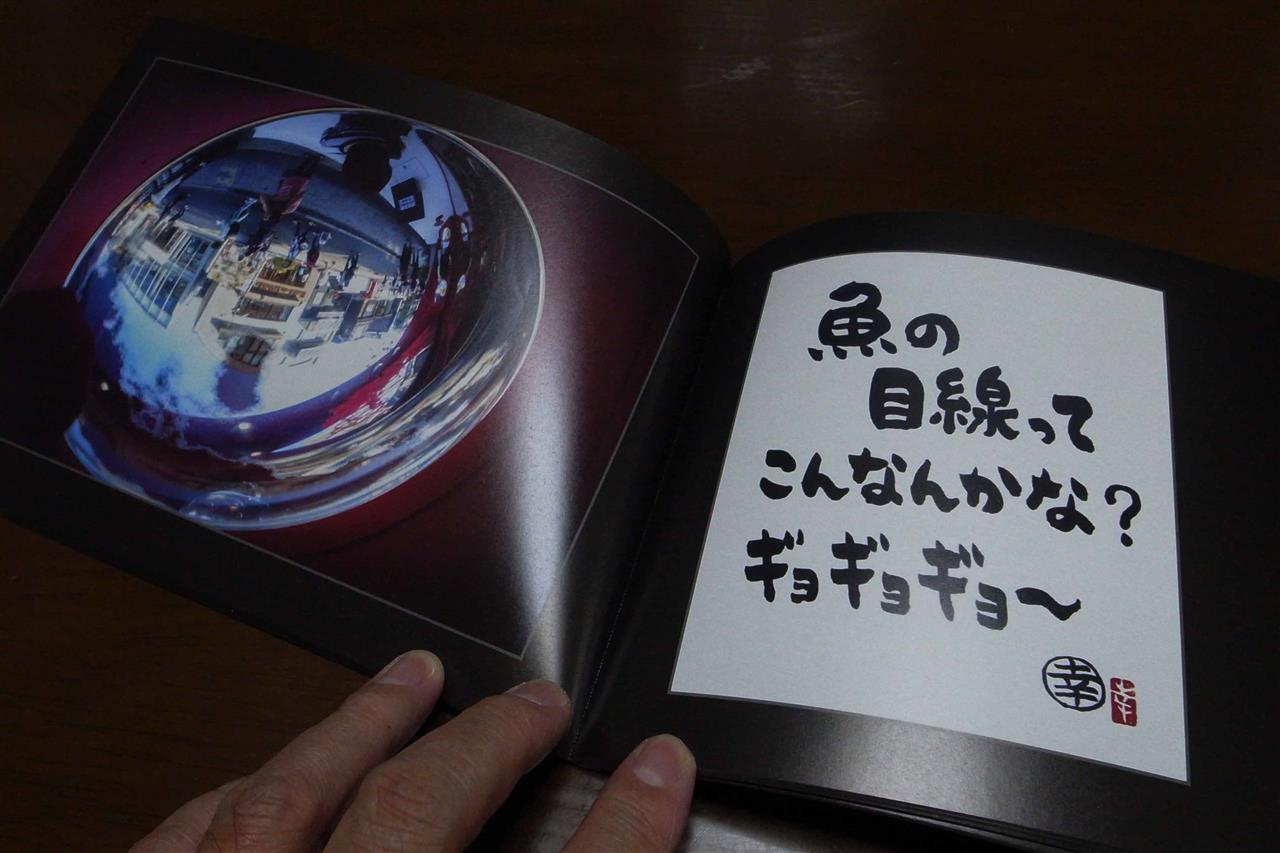 魚の
目線って
こんなんかな?
ギョギョギョ〜
幸